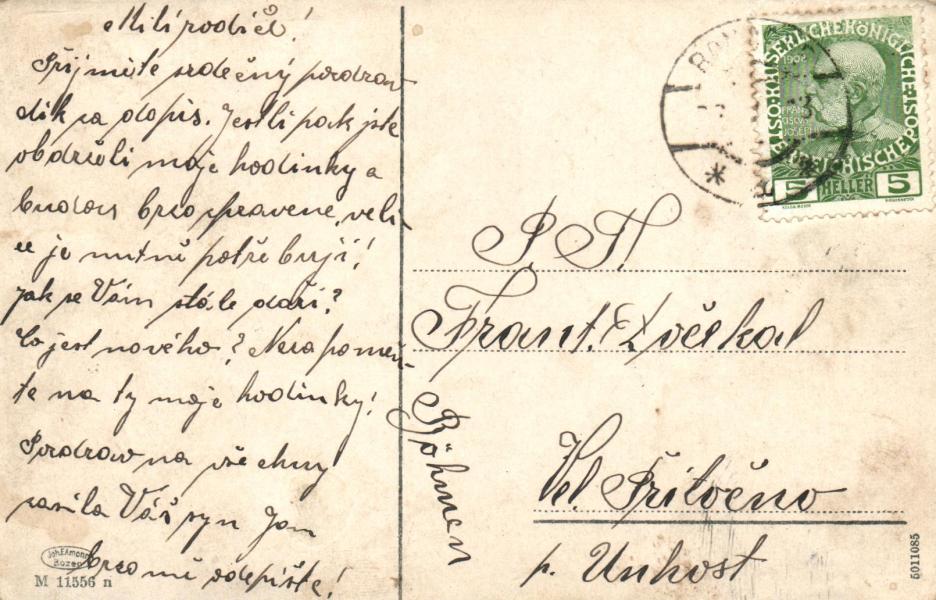 Milí rodiče!
Přijměte srdečný pozdrav
dík za dopis. Jestli pak jste
obdrželi moje hodinky a
budou brzo spravene, veli-
ce je nutně potřebuji!
Jak se Vám stále daří?
Co jest nového? Nezapomeň-
te na ty moje hodinky!
Pozdrav na všechny
zasíla Váš syn Jan
brzo mě odepište!
Joh. F. Amonn
Bozen
M 11556 n
P. T.
Frant.
Böhmen
Vel Přítočno
p. Unhošt
KAISERLICHE KÖNIGLICHE ÖSTERREICHISCHE POST
1908
FRANZ JOSEPH
5 HELLER 5
5011085